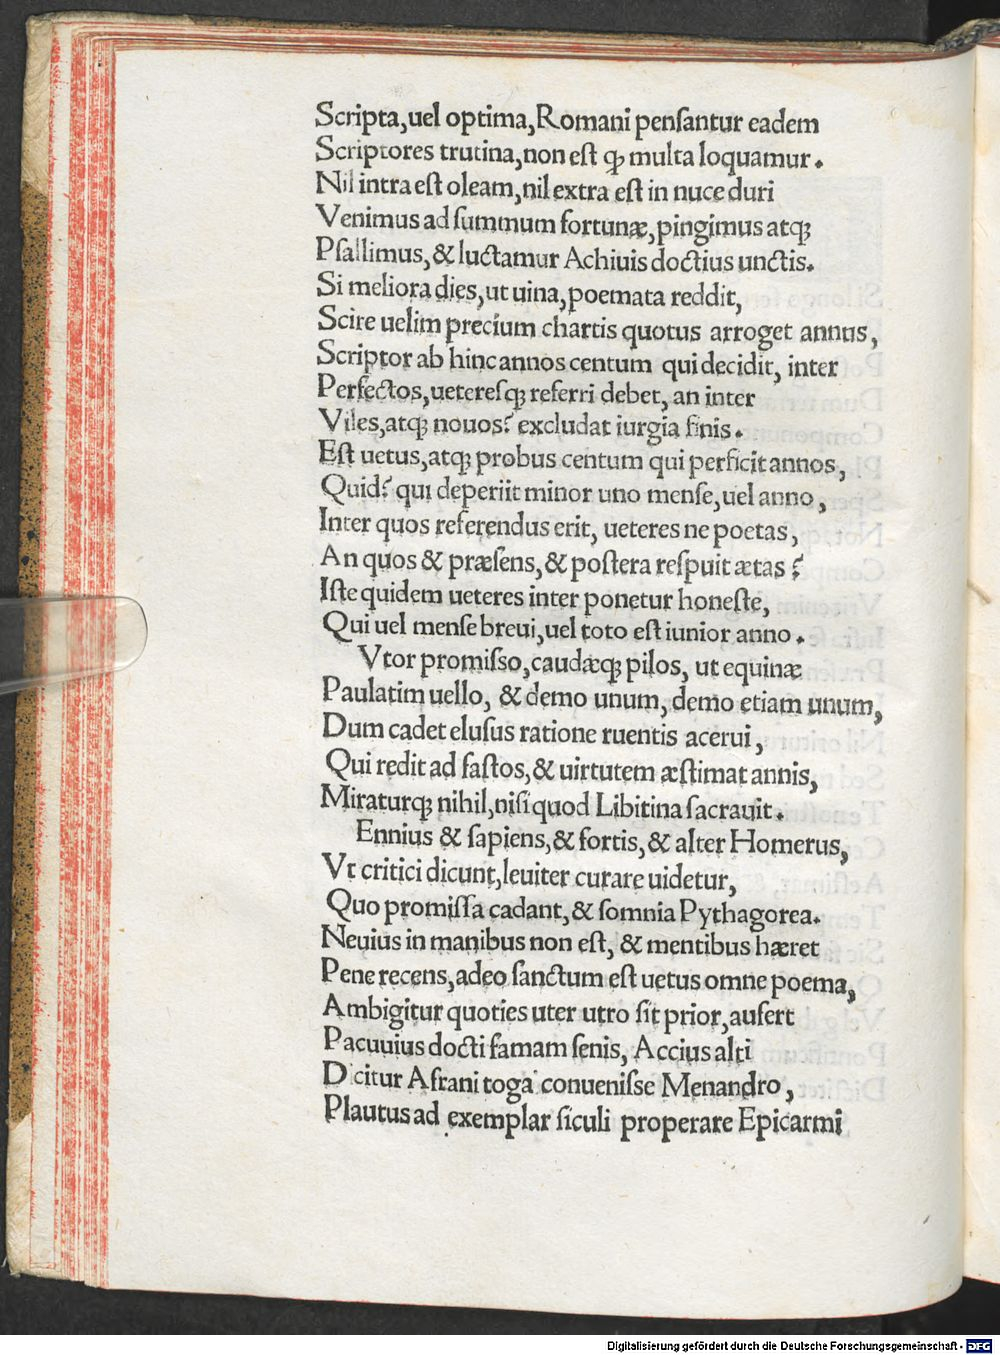 Scripta,uel optima,Romani penſantur eadem
Scriptores trutina,non eſt ꝙ multa loquamur.
Nil intra eſt oleam,nil extra eſt in nuce duri
Venimus ad ſummum fortunæ,pingimus atqꝫ
Pſallimus,& luctamur Achiuis doctius unctis.
Si meliora dies,ut uina,poemata reddit,
Scire uelim precium chartis quotus arroget annus,
Scriptor ab hinc annos centum qui decidit, inter
Perfectos,uetereſqꝫ referri debet, an inter
Viles,atqꝫ nouos? excludat iurgia finis.
Eſt uetus,atqꝫ probus centum qui perficit annos,
Quid? qui deperiit minor uno menſe,uel anno,
Inter quos referendus erit, ueteres ne poetas,
An quos & præſens,& poſtera reſpuit ætas?
Iſte quidem ueteres inter ponetur honeſte,
Qui uel menſe breui,uel toto eſt iunior anno.
Vtor promiſſo,caudæqꝫ pilos, ut equinæ
Paulatim uello, & demo unum, demo etiam unum,
Dum cadet eluſus ratione ruentis acerui,
Qui redit ad faſtos,& uirtutem æſtimat annis,
Miraturqꝫ nihil,niſi quod Libitina ſacrauit.
Ennius & ſapiens,& fortis,& alter Homerus,
Vt critici dicunt,leuiter curare uidetur,
Quo promiſſa cadant,& ſomnia Pythagorea.
Neuius in manibus non eſt, & mentibus hæret
Pene recens,adeo ſanctum eſt uetus omne poema,
Ambigitur quoties uter utro ſit prior,aufert
Pacuuius docti famam ſenis, Accius alti
Dicitur Afrani toga conueniſſe Menandro,
Plautus ad exemplar ſiculi properare Epicarmi
Digitalisierung gefördert durch die Deutsche Forschungsgemeinschaft - DFG